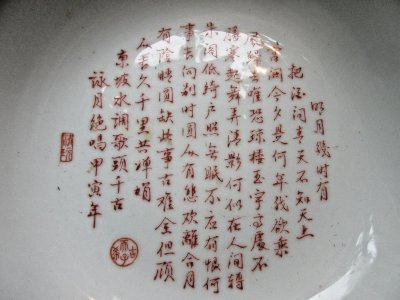 明月幾時有
把酒問青天不知天上
宮闕今夕是何年我欲乘
歸去唯恐瓊樓玉宇高處不
勝寒起舞弄清影何似在人間轉
朱閣低綺戶照無眠不应有恨何
事長向別时圓人有悲欢離合月
有陰晴圓缺此事古難全但願
人長久千里共嬋娟
東坡水調歌頭千古
詠月絶唱甲寅年
古希天子